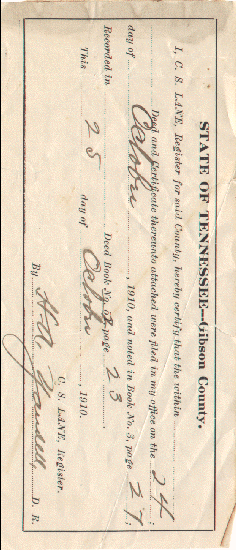 STATE OF TENNESSEE---Gibson County.
I, C. S. LANE, Register for said County, hereby certify that the within
Deed and Certificate thereunto attached were filed in my office on the 24
day of October, 1910, and noted in Book No. 3, page 27;
Recorded in Deed Book No. page 23,
This 25 day of October, 1910.
C. S. LANE, Register.
By Yandell, D. R.